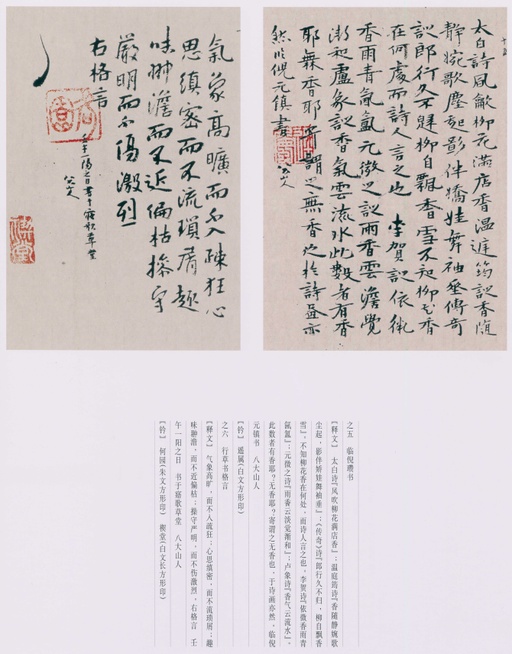 太白詩風歙柳花滿店香溫庭筠詩香隨
靜婉歌塵起影伴嬌娃舞袖垂傳奇
詩郎行久不歸柳自飄香雪不知柳花香
在何處而詩人言之也 李賀詩依微
香雨青氤氳元微之詩雨香雲澹覺
漸和盧象詩香氣雲流水此數者有香
耶無香耶寄謂之無香也於詩畫亦
然臨倪元鎮書 八大山人
氣象高曠而不入疎狂心
思縝密而不流瑣屑趣
味翀澹而不近偏枯操守
嚴明而不傷激烈
右格言
壬午一陽之日書于寤歌草堂
八大山人
之五 临倪瓒书
【释文】 太白诗『风吹柳花满店香』；温庭筠诗『香随静婉歌
尘起，影伴娇娃舞袖垂』；《传奇》诗『郎行久不归，柳自飘香
雪』，不知柳花香在何处，而诗人言之也。李贺诗『依微香雨青
氤氲』；元微之诗『雨香云淡觉渐和』；卢象诗『香气云流水』。
此数者有香耶？无香耶？寄谓之无香也，于诗画亦然，临倪
元镇书 八大山人
【钤】 遥属(白文方形印)
之六 行草书格言
【释文】 气象高旷，而不入疏狂；心思缜密，而不流琐屑；趣
味翀澹，而不近偏枯；操守严明，而不伤激烈。右格言 壬
午一阳之日 书于寤歌草堂 八大山人
【钤】 何园(朱文方形印) 禊堂(白文长方形印)